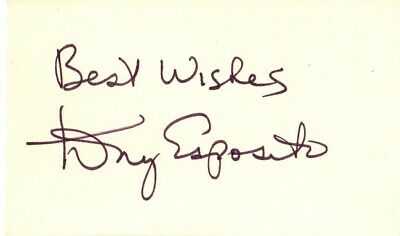 Best Wishes
Tony Esposito